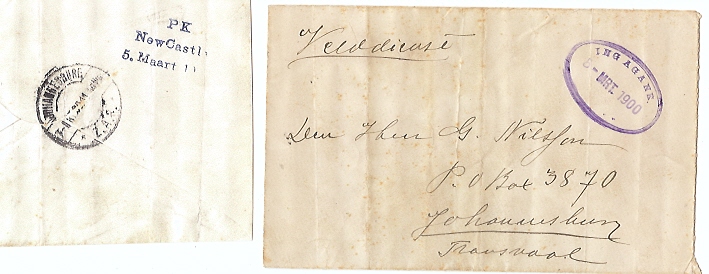 PK
NewCastl
5. Maart
JOHANNESBURG
Z.A.R.
Velddienst
INGAGANE
MRT. 1900
Den Heer G. Nilsson
P.O Box 3870
Johannesburg
Transvaal